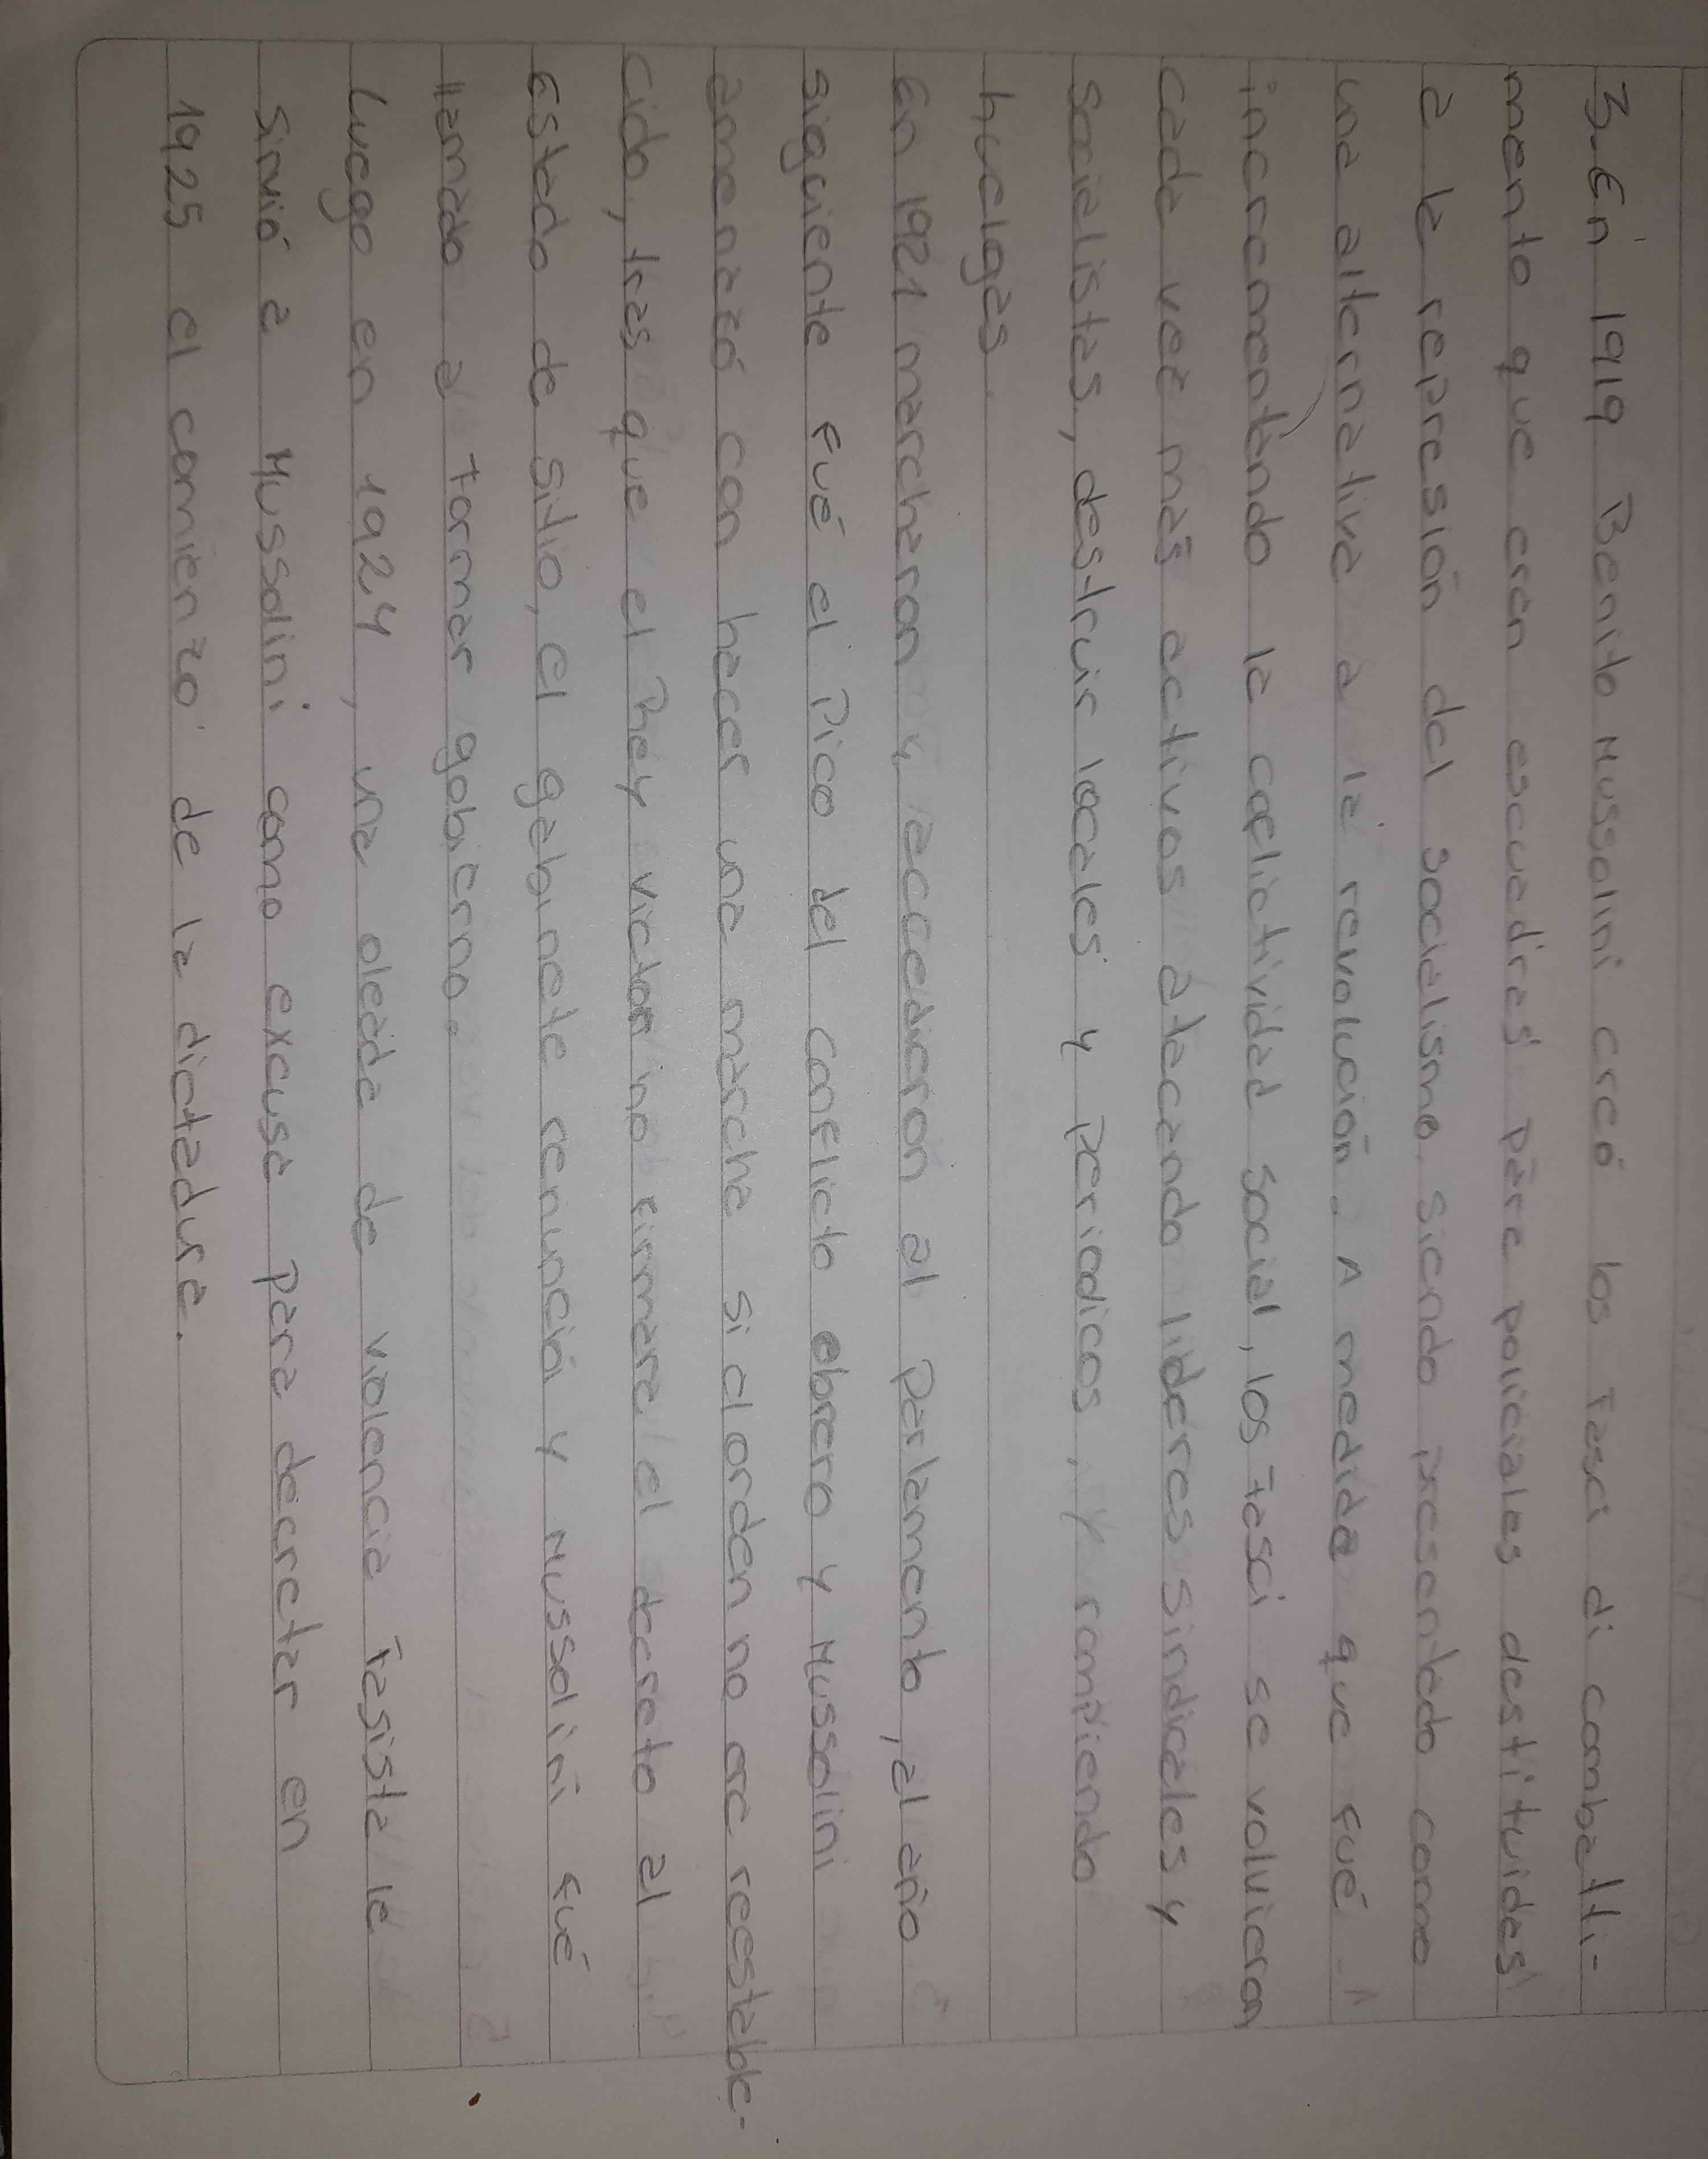 3. En 1919 Benito Mussolini creó los Fasci di combatti-
mento que eran escuadras para policiales destituidas
a la represión del socialismo, siendo presentado como
una alternativa a la revolución. A medida que fué
incrementando la coflictividad social, los Fasci se volvieron
cada vez más activos atacando líderes sindicales y
socialistas, destruir locales y periodicos, y rompiendo
huelgas.
En 1921 marcharon y accedieron al Parlamento, al año
siguiente fué el Pico del conflicto obrero y Mussolini
amenazó con hacer una marcha si el orden no era reestable-
cido, tras que el Rey Victor no firmara el decreto al
Estado de sitio, el gabinete renunció y Mussolini fué
llamado a formar gobierno.
Luego en 1924, una oleada de violencia Fasista le
sirvió a Mussolini como excusa para decretar en
1925 el comienzo de la dictadura.